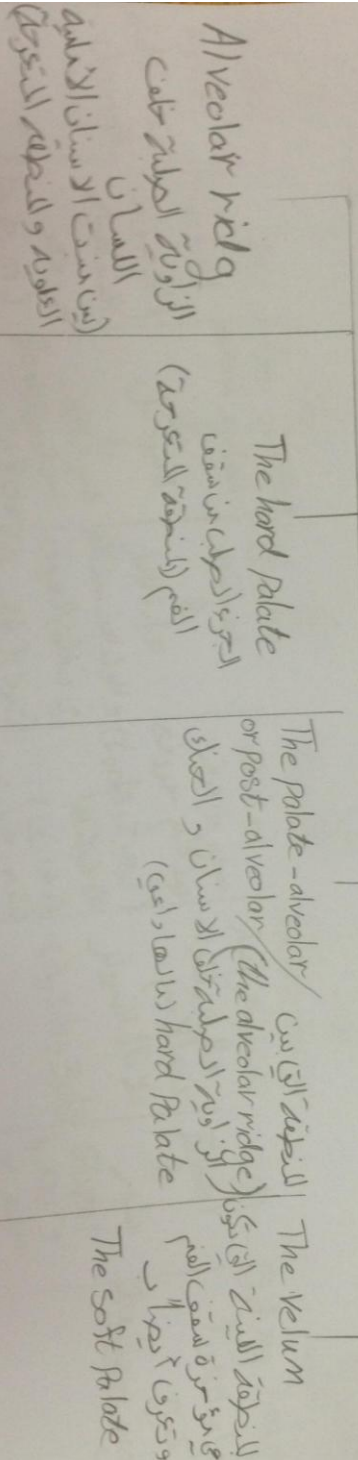 Alveolar ridg
الزاوية الصلبة خلف
اللسان
(بين منبت الاسنان الامامية
العلوية والمنطقة المتعرجة)
The hard palate
الجزء الصلب من سقف
الفم (المنطقة المتعرجة)
The palate-alveolar/ المنطقة التي بين
or post-alveolar/ (the alveolar ridge)
الزاوية الصلبة خلف الاسنان و الحنك
hard Palate
The velum
المنطقة اللينة التي تكون
في مؤخرة سقف الفم
وتعرف أيضا ب
The soft Palate